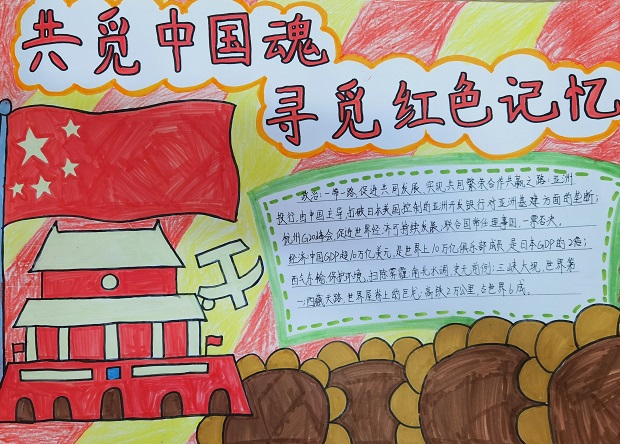 共觅中国魂
寻觅红色记忆
政治:一带一路,促进共同发展,实现共同繁荣合作共赢之路;亚洲
投行,由中国主导,打破日本美国控制的亚洲开发银行对亚洲基建方面的垄断;
杭州G20峰会,促进世界经济可持续发展,联合国常任理事国,一票否决。
经济:中国GDP超10万亿美元,是世界上10万亿俱乐部成员,是日本GDP的2倍;
西气东输,保护环境,扫除雾霾;南水北调,史无前例;三峡大坝,世界第
一;西藏天路,世界屋脊上的巨龙;高铁2万公里,占世界6成。